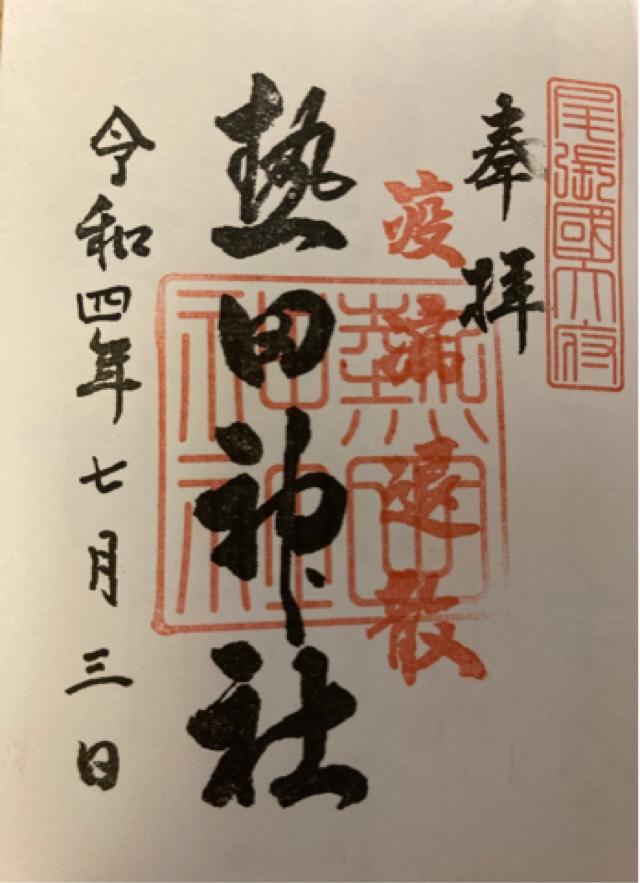 尾張國大府
奉拝
疫病退散
熱田神社
熱田神社
令和四年七月三日